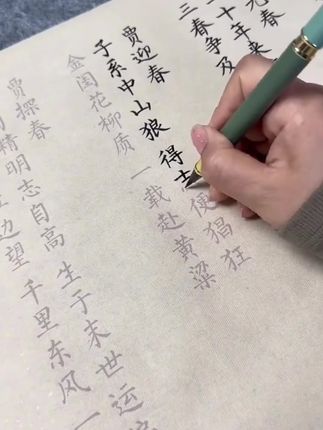 元春
十年来
三春争及
贾迎春
子系中山狼 得志便猖狂
金闺花柳质 一载赴黄粱
贾探春
精明志自高 生于末世运
边望 千里东风一